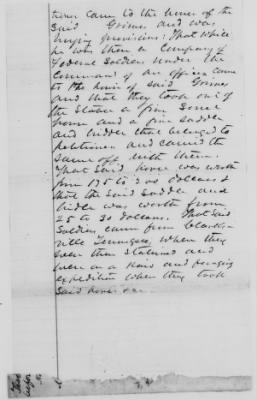 tioner came to the house of the
said Grimes and was
buying provisions: That while
he was there a Company of
Federal Soldiers under the
Command of an officer came
to the house of said Grimes
and that they took out of
the Stable a fine Sorrel
horse and a fine saddle
and bridle that belonged to
petitioner and carried the
same off with them.
That said horse was worth
from 175 to 200 dollars &
that the said Saddle and
bridle was worth from
25 to 30 dollars. That said
Soldiers came from Clarks-
ville Tennessee, where they
were then stationed and
were on a and foraging
expedition when they took
said horse &c.